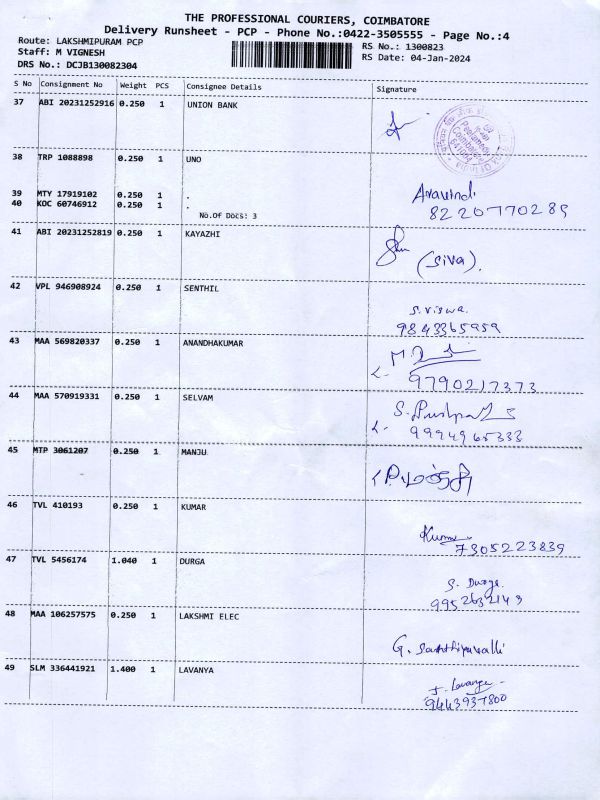 THE PROFESSIONAL COURIERS, COIMBATORE
Delivery Runsheet - PCP - Phone No.:0422-3505555 - Page No.:4
Route: LAKSHMIPURAM PCP
RS No.: 1300823
Staff: M VIGNESH
RS Date: 04-Jan-2024
DRS No.: DCJB130082304
S No Consignment No Weight PCS Consignee Details Signature
37 ABI 20231252916 0.250 1 UNION BANK
38 TRP 1088898 0.250 1 UNO
39 MTY 17919102 0.250 1 .
40 KOC 60746912 0.250 1 .
Aravind
8220770289
No.Of Docs: 3
41 ABI 20231252819 0.250 1 KAYAZHI
(Siva).
42 VPL 946908924 0.250 1 SENTHIL
S. Viswa.
9843365959
43 MAA 569820337 0.250 1 ANANDHAKUMAR
9790217373
44 MAA 570919331 0.250 1 SELVAM
9994965333
45 MTP 3061207 0.250 1 MANJU
46 TVL 410193 0.250 1 KUMAR
Kumar
7305223839
47 TVL 5456174 1.040 1 DURGA
S. Durga.
9952632143
48 MAA 106257575 0.250 1 LAKSHMI ELEC
49 SLM 336441921 1.400 1 LAVANYA
9443937800